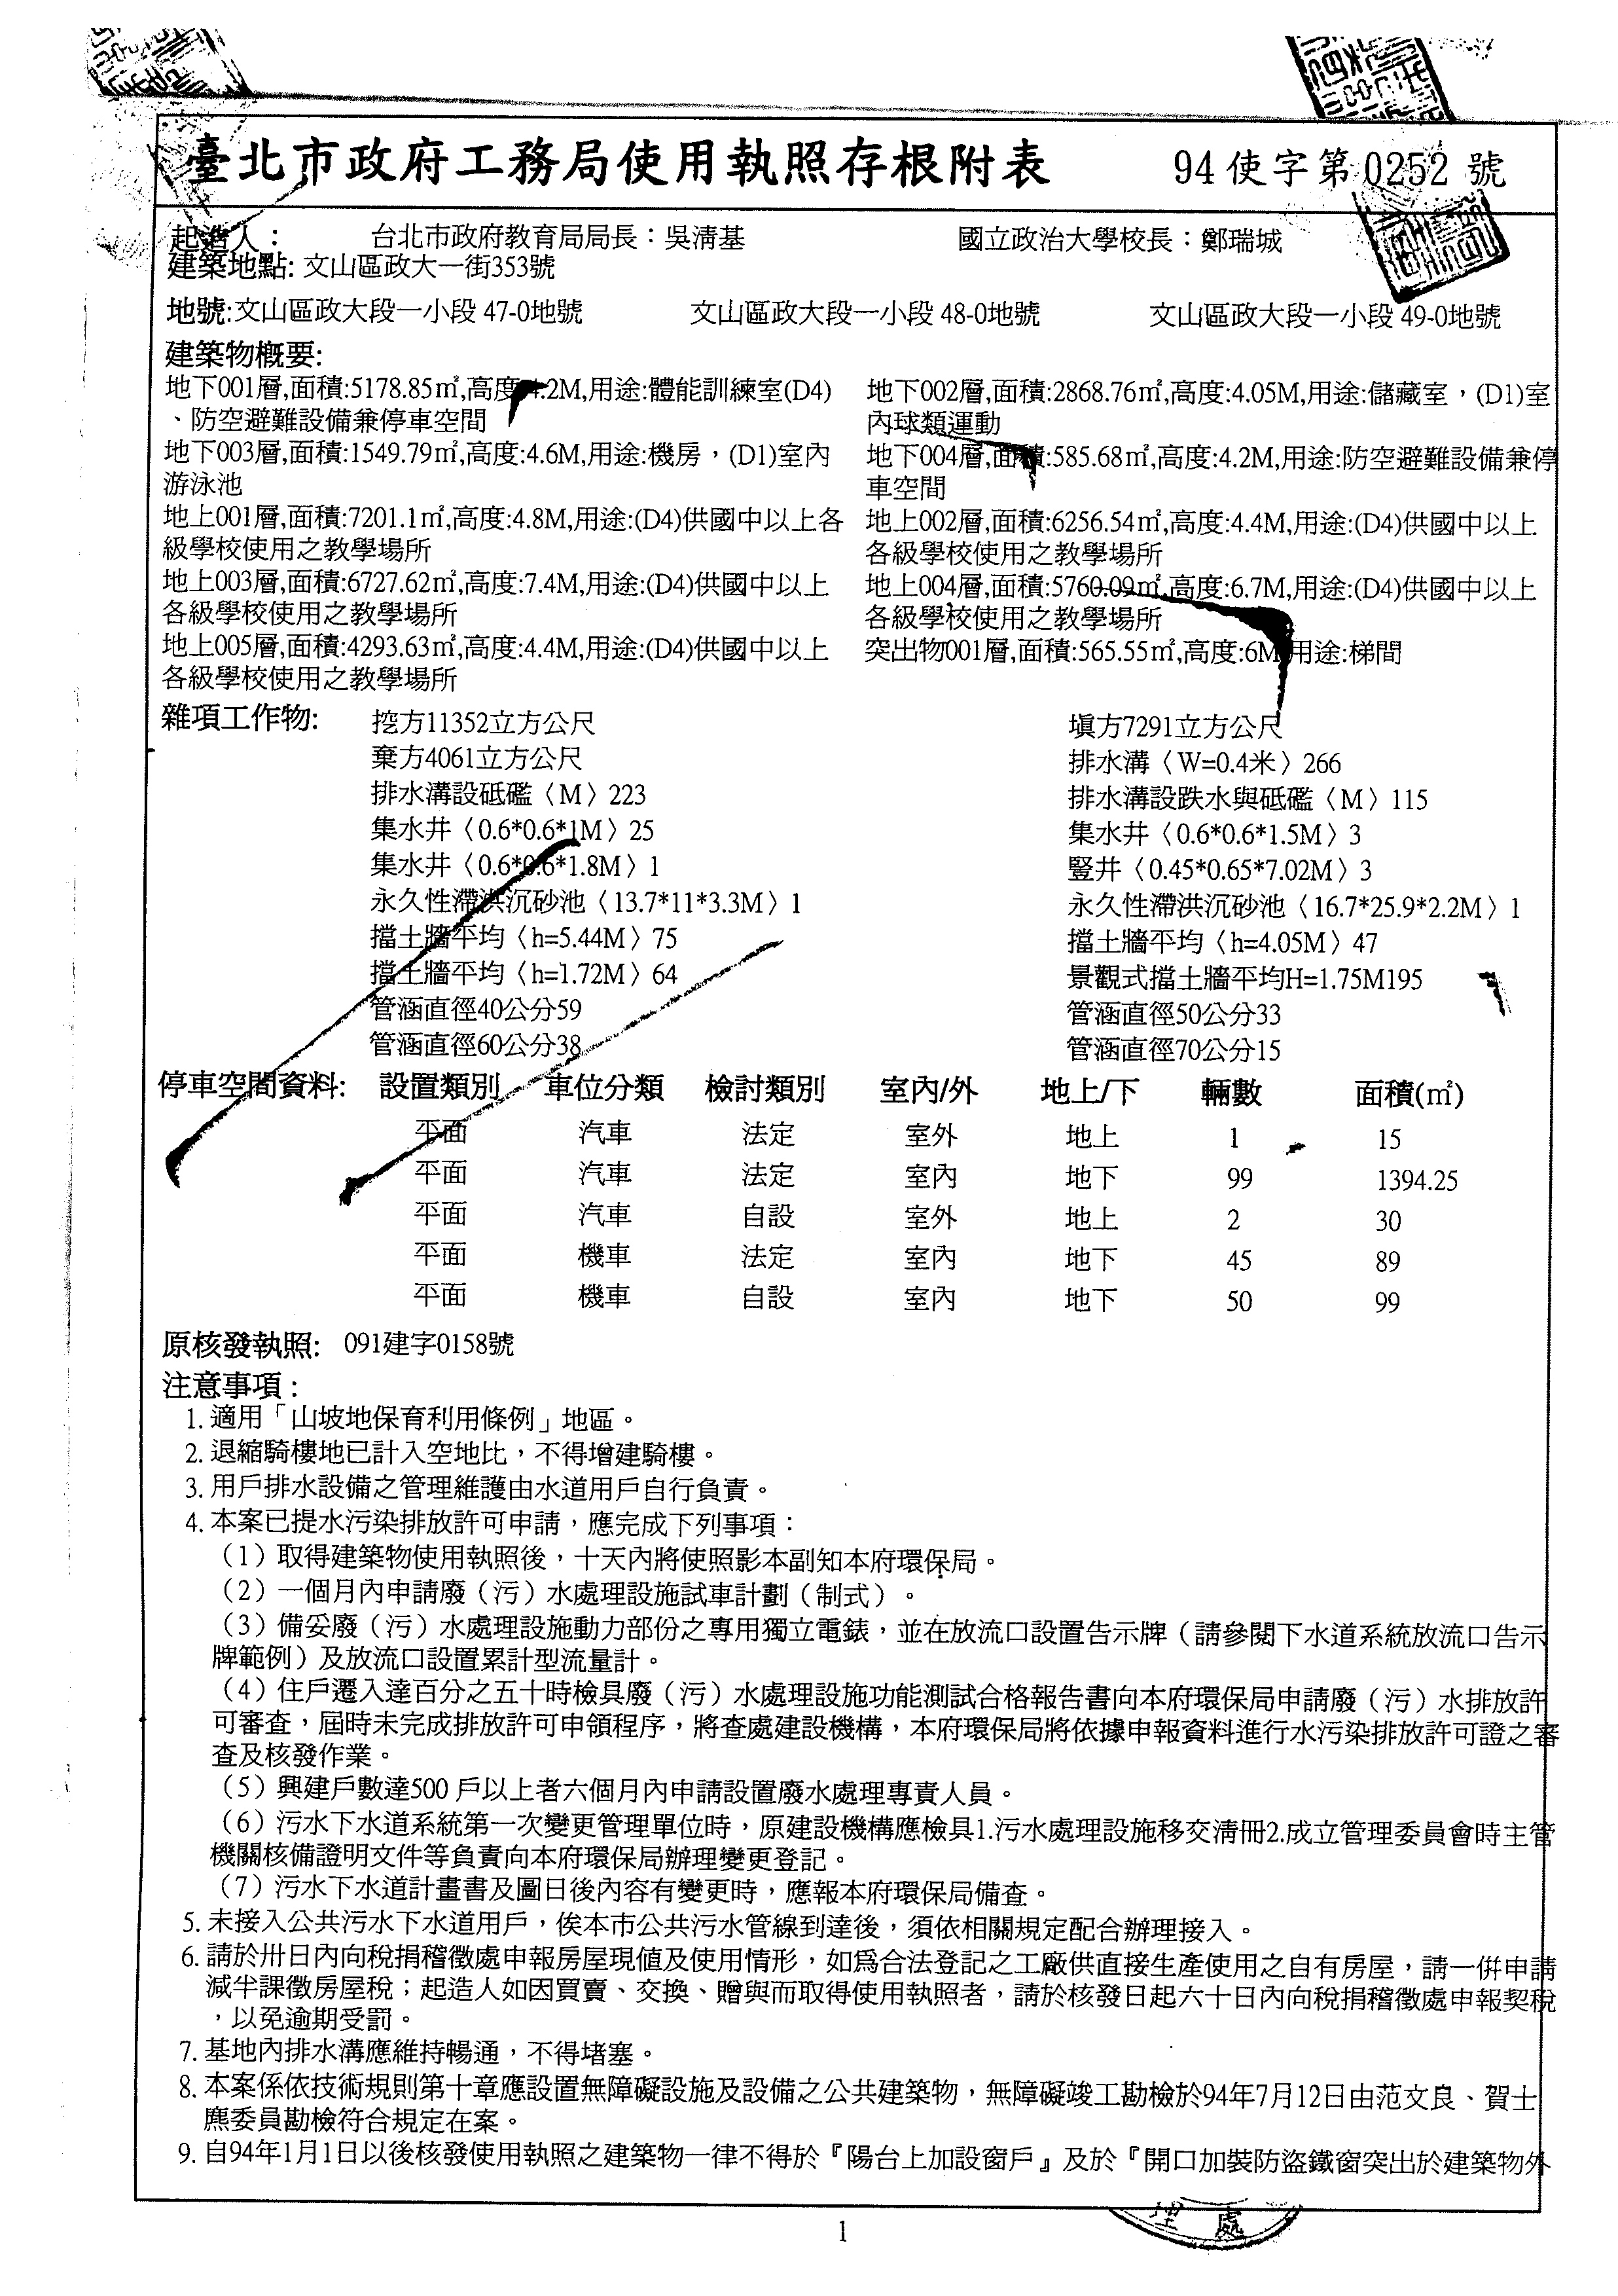 臺北市政府工務局使用執照存根附表 94使字第0252號
起造人： 台北市政府教育局局長：吳清基 國立政治大學校長：鄭瑞城
建築地點: 文山區政大一街353號
地號:文山區政大段一小段 47-0地號 文山區政大段一小段 48-0地號 文山區政大段一小段 49-0地號
建築物概要:
地下001層,面積:5178.85㎡,高度:4.2M,用途:體能訓練室(D4)
、防空避難設備兼停車空間
地下002層,面積:2868.76㎡,高度:4.05M,用途:儲藏室，(D1)室
內球類運動
地下003層,面積:1549.79㎡,高度:4.6M,用途:機房，(D1)室內
游泳池
地下004層,面積:585.68㎡,高度:4.2M,用途:防空避難設備兼停
車空間
地上001層,面積:7201.1㎡,高度:4.8M,用途:(D4)供國中以上各
級學校使用之教學場所
地上002層,面積:6256.54㎡,高度:4.4M,用途:(D4)供國中以上
各級學校使用之教學場所
地上003層,面積:6727.62㎡,高度:7.4M,用途:(D4)供國中以上
各級學校使用之教學場所
地上004層,面積:5760.09㎡,高度:6.7M,用途:(D4)供國中以上
各級學校使用之教學場所
地上005層,面積:4293.63㎡,高度:4.4M,用途:(D4)供國中以上
各級學校使用之教學場所
突出物001層,面積:565.55㎡,高度:6M,用途:梯間
雜項工作物: 挖方11352立方公尺 填方7291立方公尺
棄方4061立方公尺 排水溝〈W=0.4米〉266
排水溝設砥礛〈M〉223 排水溝設跌水與砥礛〈M〉115
集水井〈0.6*0.6*1M〉25 集水井〈0.6*0.6*1.5M〉3
集水井〈0.6*0.6*1.8M〉1 豎井〈0.45*0.65*7.02M〉3
永久性滯洪沉砂池〈13.7*11*3.3M〉1 永久性滯洪沉砂池〈16.7*25.9*2.2M〉1
擋土牆平均〈h=5.44M〉75 擋土牆平均〈h=4.05M〉47
擋土牆平均〈h=1.72M〉64 景觀式擋土牆平均H=1.75M195
管涵直徑40公分59 管涵直徑50公分33
管涵直徑60公分38 管涵直徑70公分15
停車空間資料: 設置類別 車位分類 檢討類別 室內/外 地上/下 輛數 面積(㎡)
平面 汽車 法定 室外 地上 1 15
平面 汽車 法定 室內 地下 99 1394.25
平面 汽車 自設 室外 地上 2 30
平面 機車 法定 室內 地下 45 89
平面 機車 自設 室內 地下 50 99
原核發執照: 091建字0158號
注意事項：
1. 適用「山坡地保育利用條例」地區。
2. 退縮騎樓地已計入空地比，不得增建騎樓。
3. 用戶排水設備之管理維護由水道用戶自行負責。
4. 本案已提水污染排放許可申請，應完成下列事項：
（1）取得建築物使用執照後，十天內將使照影本副知本府環保局。
（2）一個月內申請廢（污）水處理設施試車計劃（制式）。
（3）備妥廢（污）水處理設施動力部份之專用獨立電錶，並在放流口設置告示牌（請參閱下水道系統放流口告示
牌範例）及放流口設置累計型流量計。
（4）住戶遷入達百分之五十時檢具廢（污）水處理設施功能測試合格報告書向本府環保局申請廢（污）水排放許
可審查，屆時未完成排放許可申領程序，將查處建設機構，本府環保局將依據申報資料進行水污染排放許可證之審
查及核發作業。
（5）興建戶數達500 戶以上者六個月內申請設置廢水處理專責人員。
（6）污水下水道系統第一次變更管理單位時，原建設機構應檢具1.污水處理設施移交清冊2.成立管理委員會時主管
機關核備證明文件等負責向本府環保局辦理變更登記。
（7）污水下水道計畫書及圖日後內容有變更時，應報本府環保局備查。
5. 未接入公共污水下水道用戶，俟本市公共污水管線到達後，須依相關規定配合辦理接入。
6. 請於卅日內向稅捐稽徵處申報房屋現值及使用情形，如為合法登記之工廠供直接生產使用之自有房屋，請一併申請
減半課徵房屋稅；起造人如因買賣、交換、贈與而取得使用執照者，請於核發日起六十日內向稅捐稽徵處申報契稅
，以免逾期受罰。
7. 基地內排水溝應維持暢通，不得堵塞。
8. 本案係依技術規則第十章應設置無障礙設施及設備之公共建築物，無障礙竣工勘檢於94年7月12日由范文良、賀士
麃委員勘檢符合規定在案。
9. 自94年1月1日以後核發使用執照之建築物一律不得於『陽台上加設窗戶』及於『開口加裝防盜鐵窗突出於建築物外
1
理 處